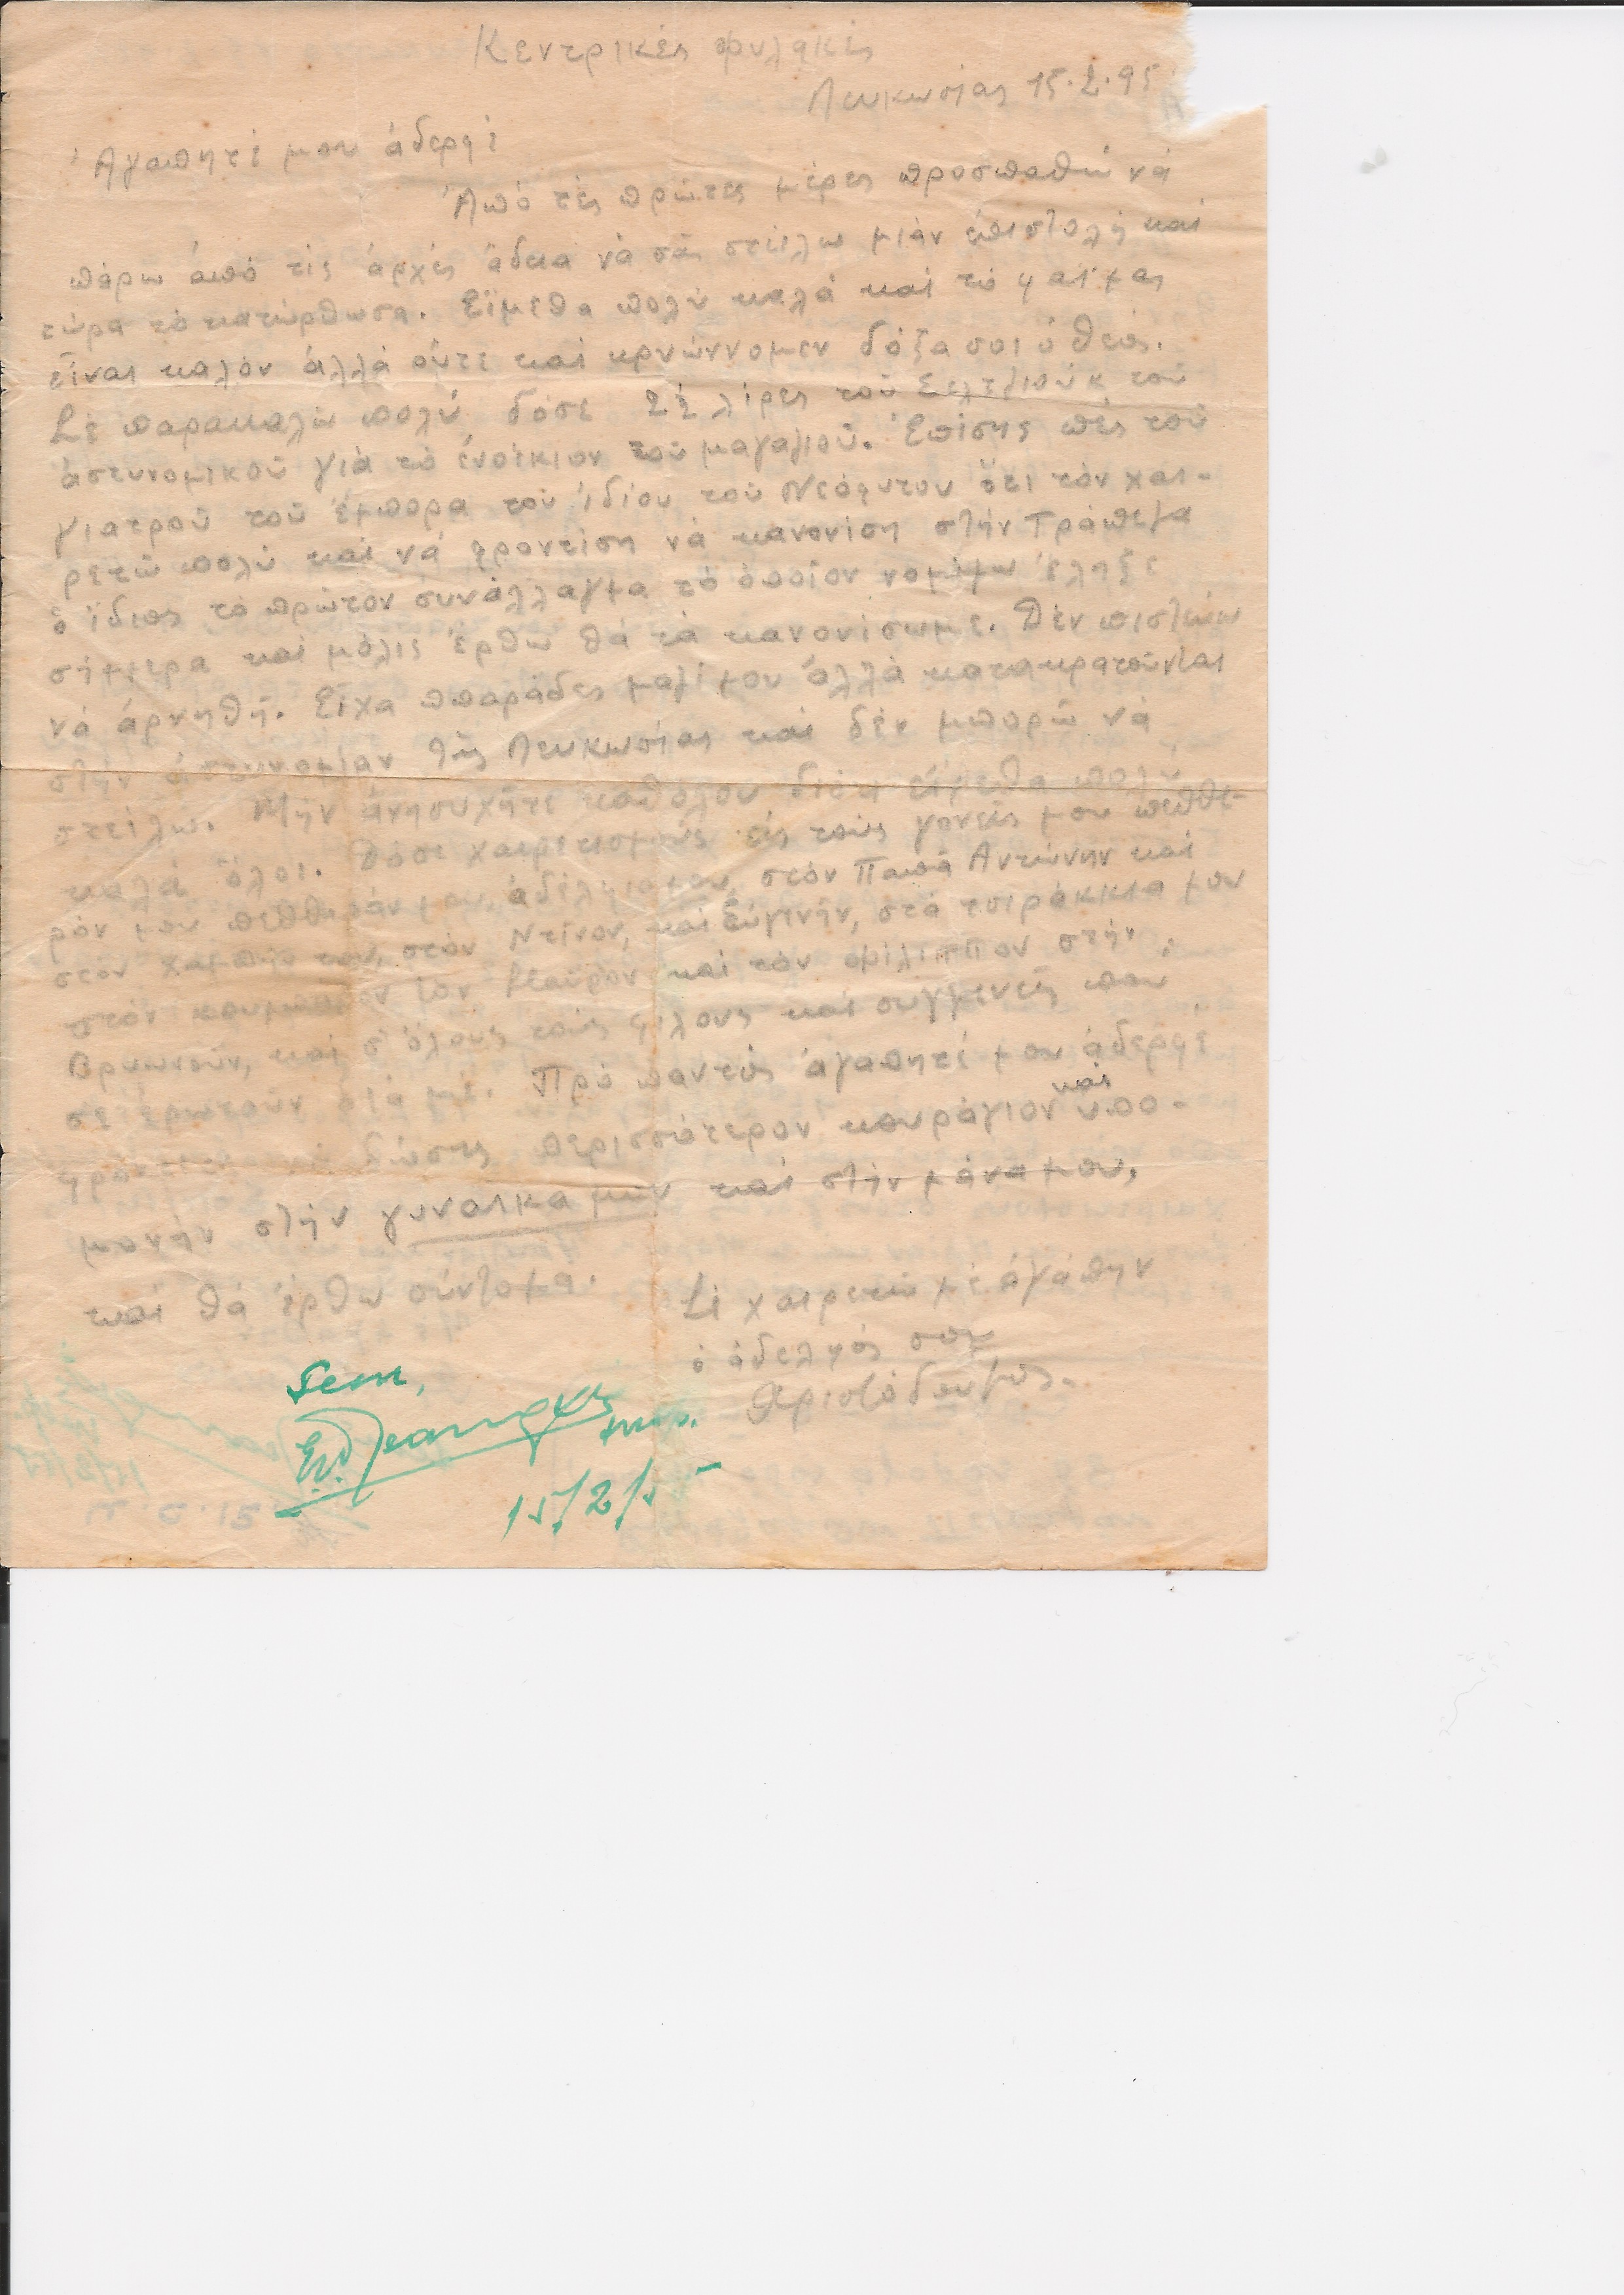 Κεντρικές φυλακές
Λευκωσίας 15.2.95
Ἀγαπητέ μου ἀδερφέ
Ἀπό τές πρῶτες μέρες προσπαθῶ νά
πάρω ἀπό τίς ἀρχές ἄδεια νά σᾶς στείλω μιάν ἐπιστολή καί
τώρα τό κατώρθωσα. Εἴμεθα πολύ καλά καί τό φαΐ μας
εἶναι καλόν ἀλλά οὔτε καί κρυώννομεν δόξα σοι ὁ θεός.
Σέ παρακαλῶ πολύ δόσε λίρες τοῦ Σελτζιούκ τοῦ
ἀστυνομικοῦ γιά τό ἐνοίκιον τοῦ μαγαζιοῦ. Ἐπίσης πές τοῦ
γιατροῦ τοῦ ἔμπορα τοῦ ἰδίου τοῦ Νεόφυτου ὅτι τόν χαι-
ρετῶ πολύ καί νά φροντίση νά κανονίση στήν Τράπεζα
ὁ ἴδιος τό πρῶτον συνάλλαγμα τό ὁποῖον νομίζω ἔληξε
σήμερα καί μόλις ἔρθω θά τά κανονίσωμε. Δέν πιστεύω
νά ἀρνηθῆ. Εἶχα παράδες μαζί μου ἀλλά κατακρατοῦνται
στήν ἀστυνομίαν τῆς Λευκωσίας καί δέν μπορῶ νά
στείλω. Μήν ἀνησυχῆτε καθόλου διότι εἴμεθα πολύ
καλά ὅλοι. Δόσε χαιρετισμούς εἰς τούς γονεῖς μου πεθθε-
ρόν μου πεθθεράν μου, ἀδέλφια μου, στόν Παπά Ἀντώνην καί
στόν του, στόν Ντίνον, καί Εὐγενήν, στά τσιράκκια μου
στόν κουμπάρον τόν Μαῦρον καί τόν Φίλιππον στήν
Βρυωνούν, καί σ' ὅλους τούς φίλους καί συγγενεῖς που
σέ ἐρωτοῦν διά μέ. Πρό παντός ἀγαπητέ μου ἀδερφέ
νά δώσης περισσότερον κουράγιον καί ὑπο-
μονήν στήν γυναῖκα μου καί στήν μάνα μου,
καί θά ἔρθω σύντομα.
Σέ χαιρετῶ μέ ἀγάπην
ὁ ἀδελφός σου
Χριστόδουλος.
Seen,
15/2/5